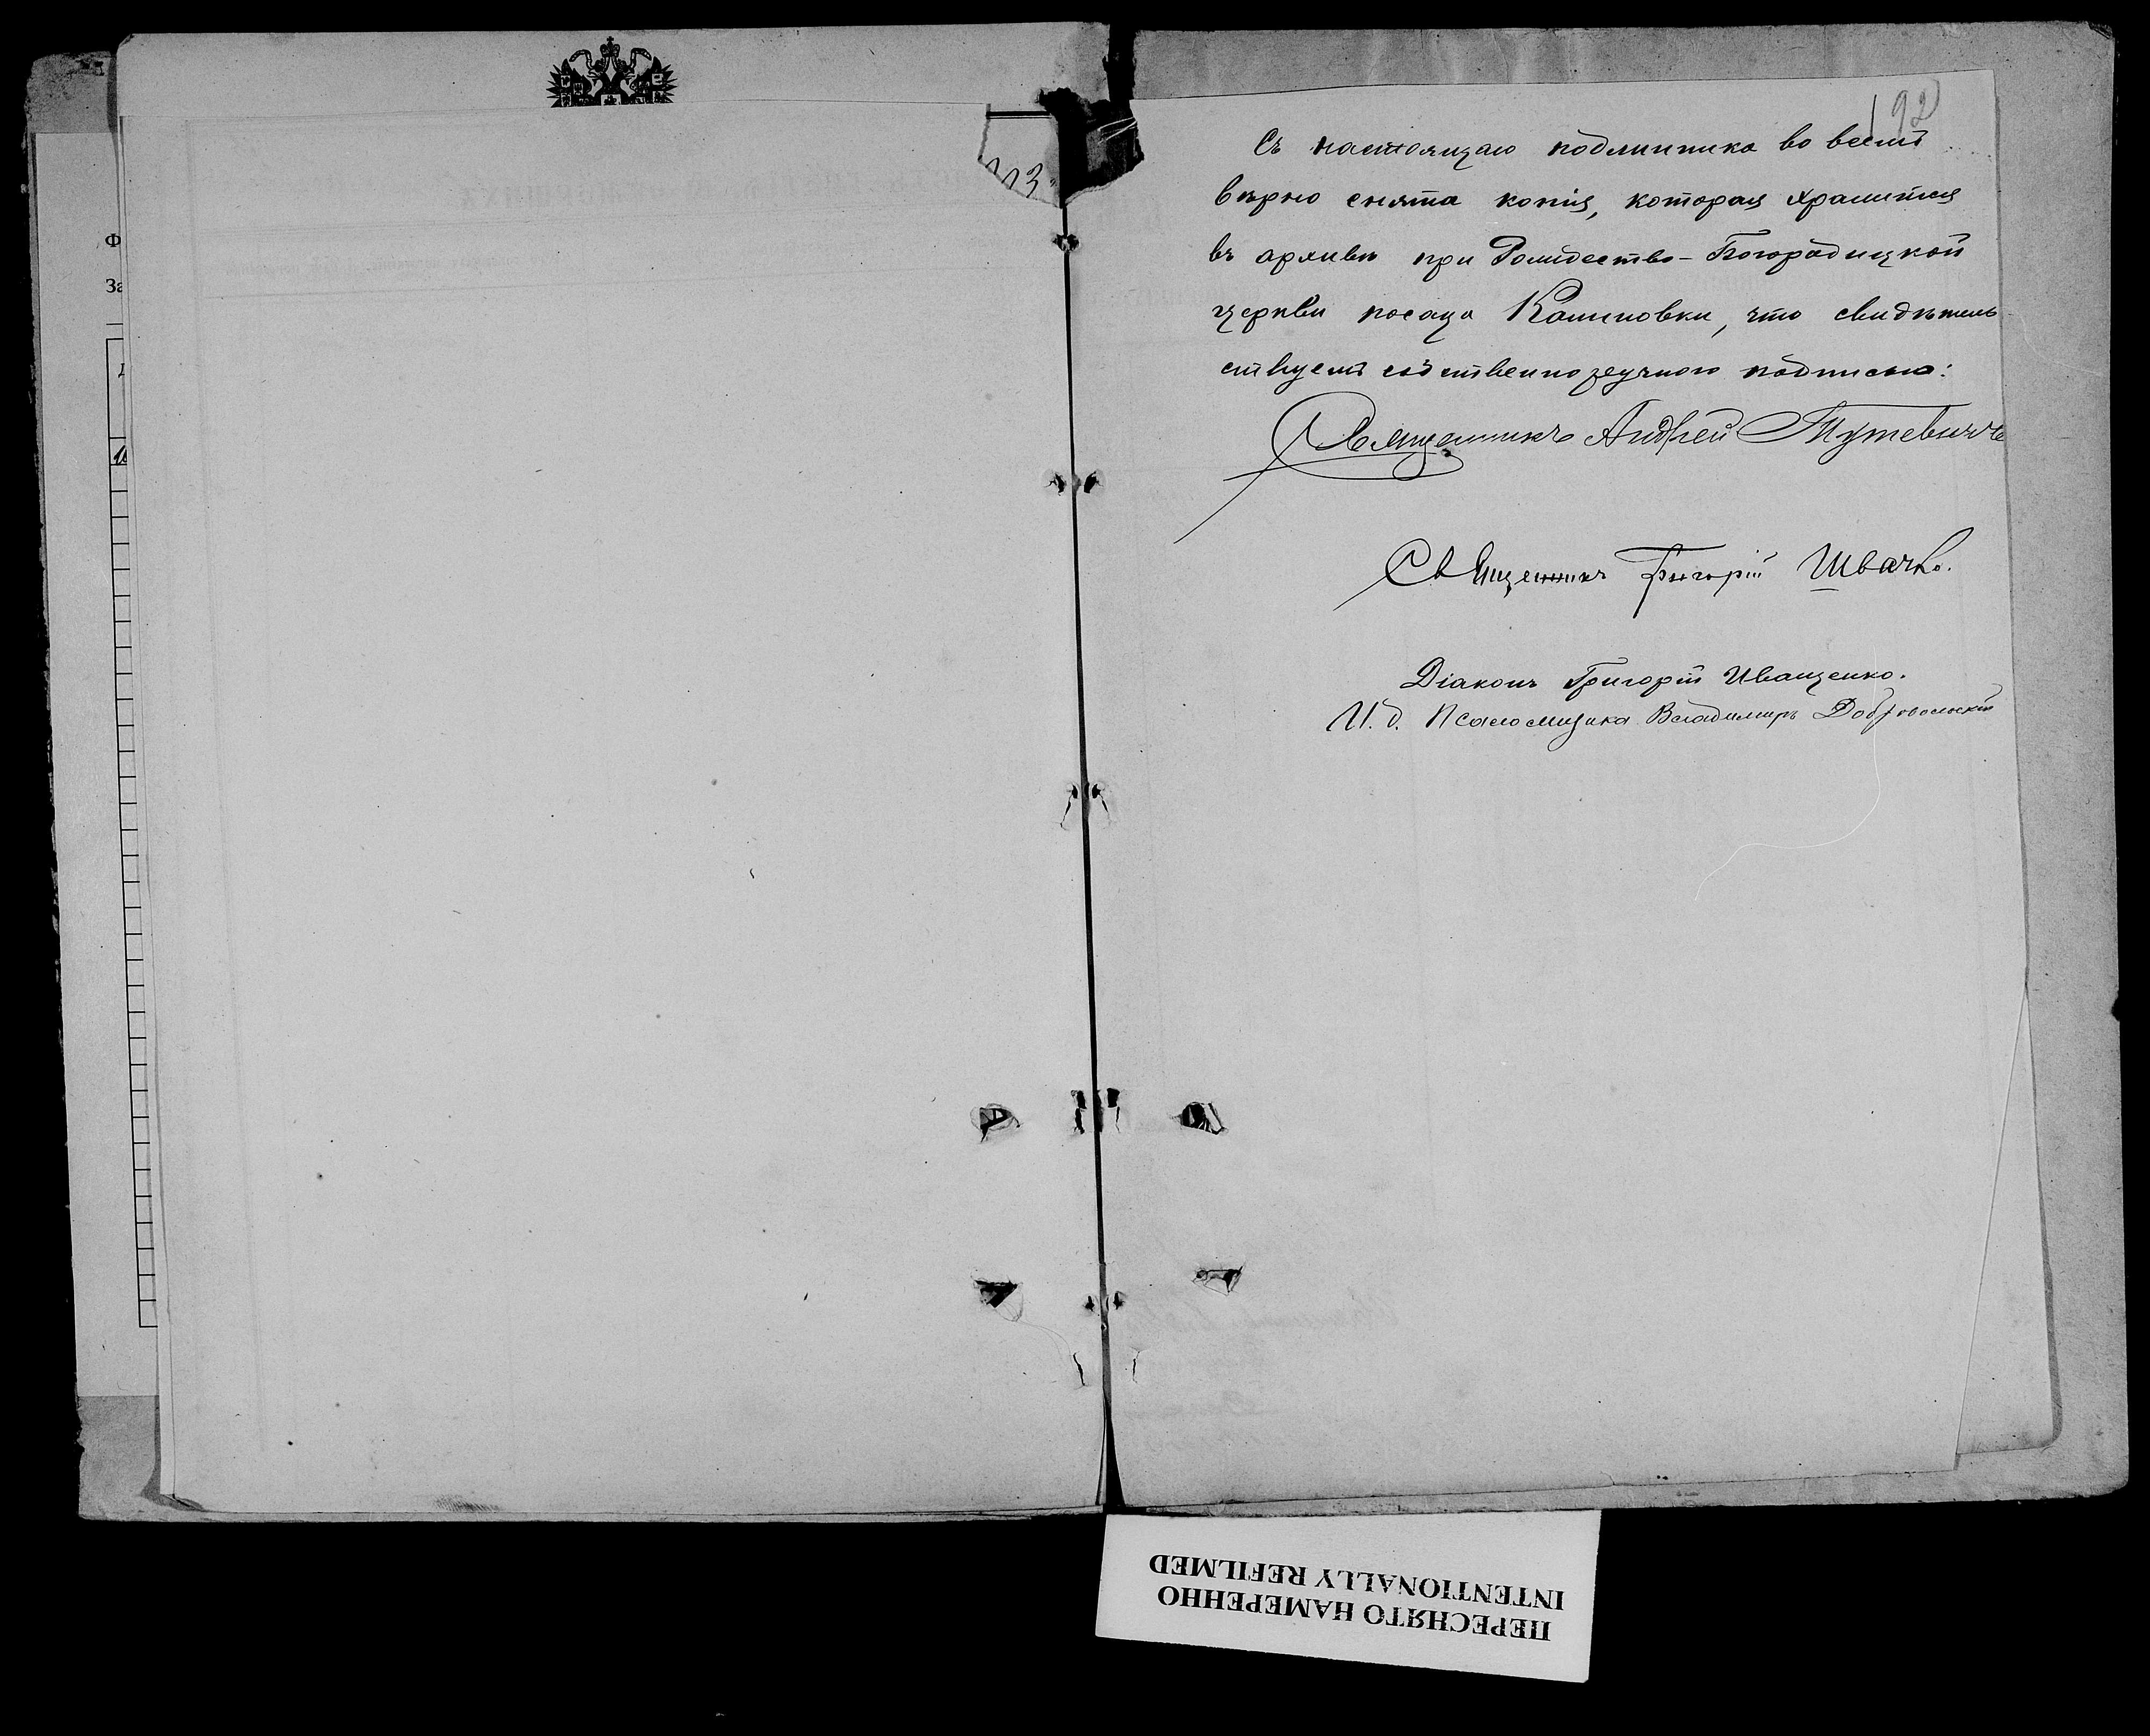 192
Съ настоящаго подлинника во всемъ
вѣрно снята копія, которая хранится
въ архивѣ при Рождество-Богородицкой
церкви посада Калиновки, что свидѣтель-
ствуемъ собственноручною подписью:
Священникъ Андрей
Священникъ Григорій Швачко.
Діаконъ Григорій Иващенко.
И. д. Псаломщика Владимиръ Добровольскій
ПЕРЕСНЯТО НАМЕРЕННО
INTENTIONALLY REFILMED